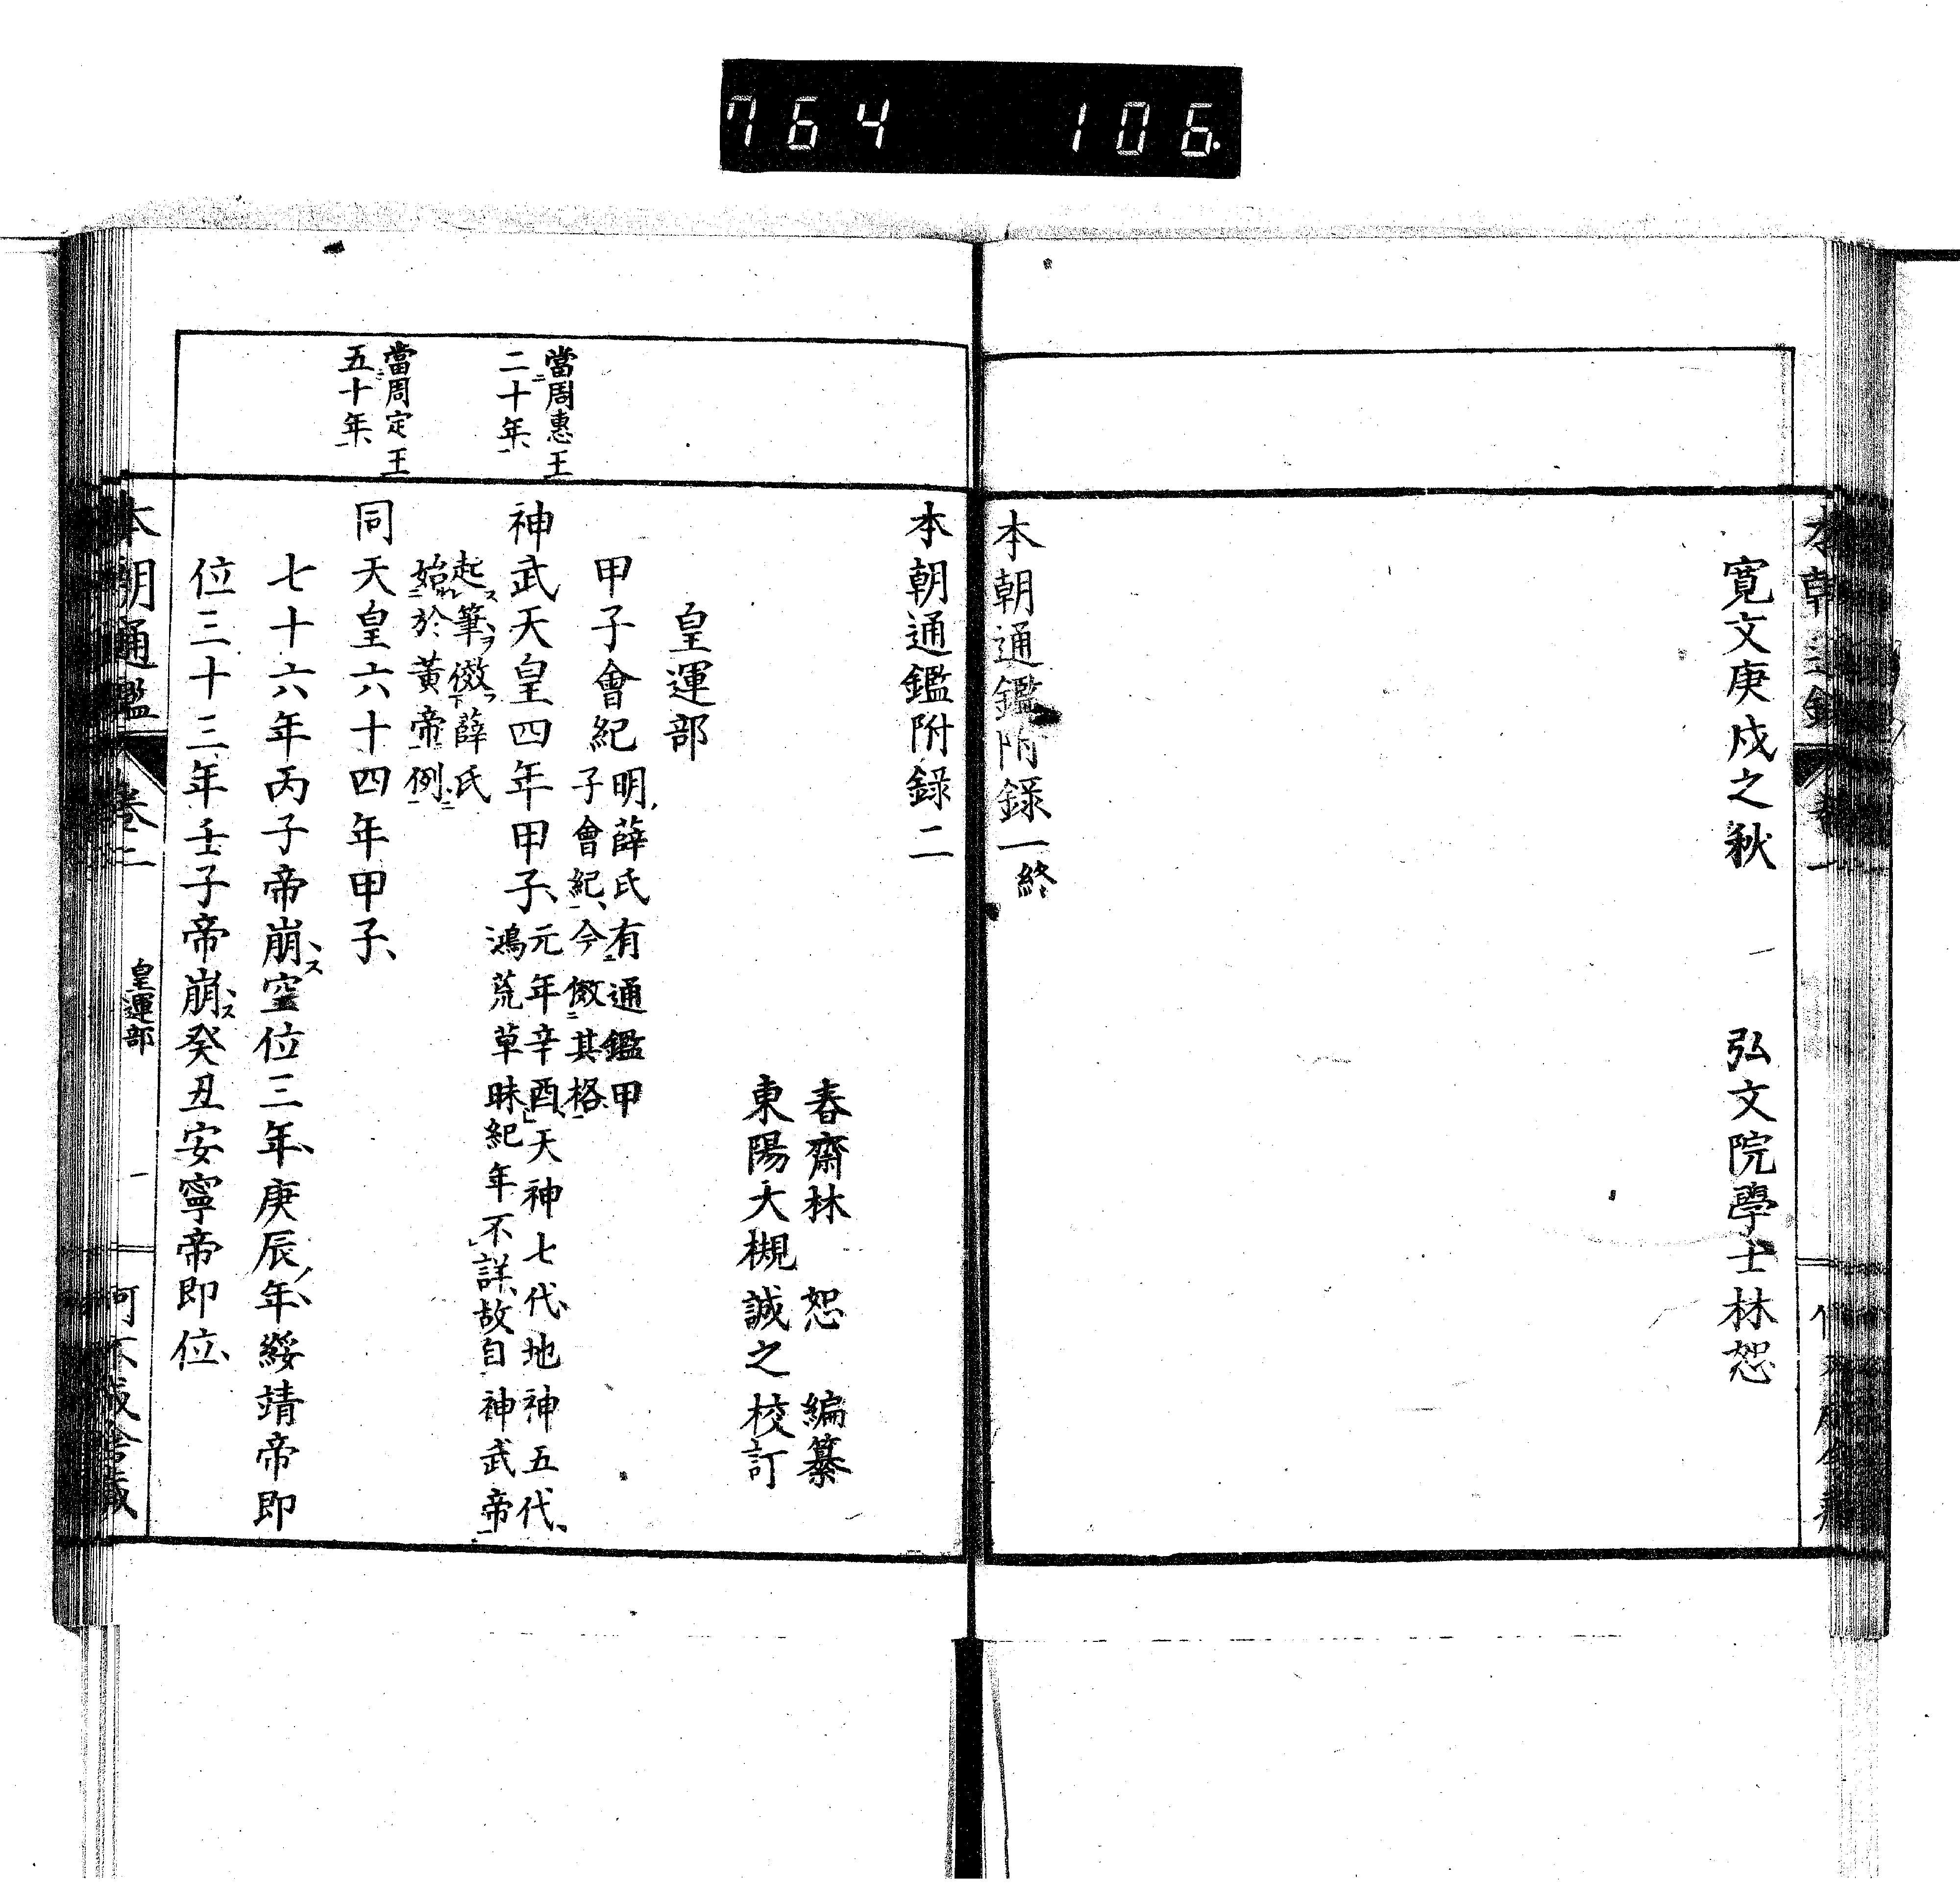 764 106.
寛文庚戌之秋 弘文院學士林恕
本朝通鑑附錄一終
本朝通鑑附錄二
春齋林 恕 編纂
東陽大槻誠之校訂
皇運部
甲子會紀
明薛氏有通鑑甲
子會紀今倣其格
當周惠王
二十年
神武天皇四年甲子
元年辛酉天神七代地神五代
鴻荒草昧紀年不詳故自神武帝
起筆倣薛氏
始於黃帝例
當周定王
五十年
同天皇六十四年甲子
七十六年丙子帝崩空位三年庚辰年綏靖帝即
位三十三年壬子帝崩癸丑安寧帝即位
本朝通鑑 卷二 皇運部 一